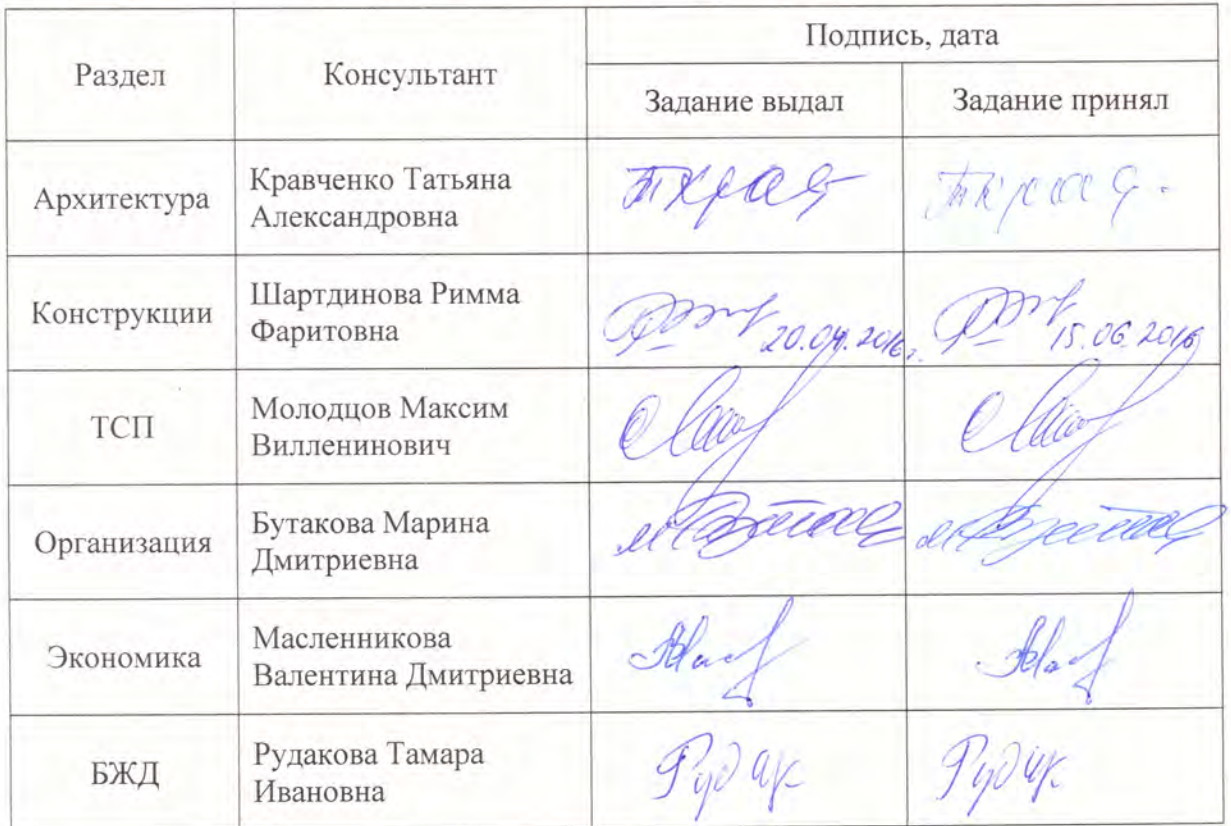 Раздел
Консультант
Подпись, дата
Задание выдал
Задание принял
Архитектура
Кравченко Татьяна
Александровна
Конструкции
Шартдинова Римма
Фаритовна
20.04.2016г.
15.06.2016
ТСП
Молодцов Максим
Вилленинович
Организация
Бутакова Марина
Дмитриевна
Экономика
Масленникова
Валентина Дмитриевна
БЖД
Рудакова Тамара
Ивановна